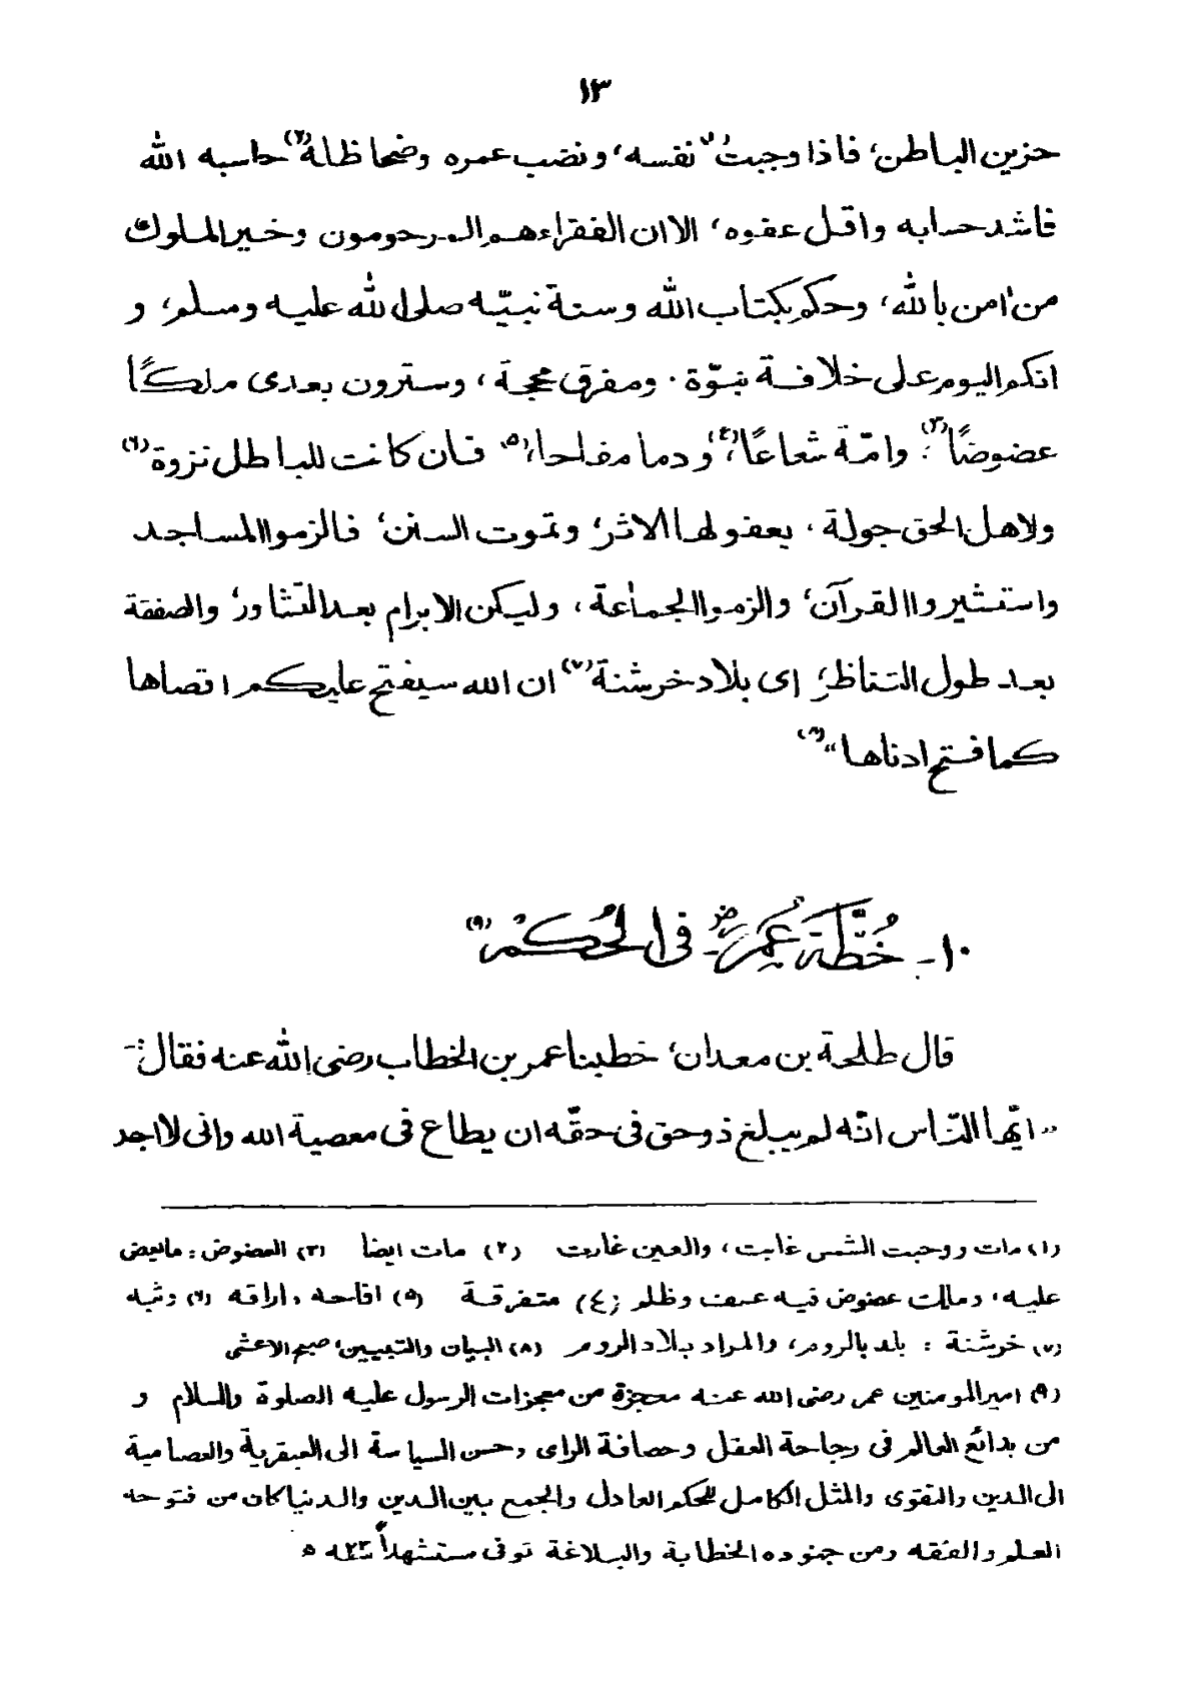 ١٣
حزين الباطن؛ فاذا وجبتُ(١) نفسه، ونضب عمره وضحا ظلهُ(٢) حاسبه الله
فاشد حسابه واقل عفوه، الا ان الفقراء هم المرحومون وخير الملوك
من اٰمن بالله، وحكم بكتاب الله وسنة نبيّه صلى الله عليه وسلم، و
انكم اليوم على خلافة نبوّة. ومفرق محجة، وسترون بعدى ملكًا
عضوضًا(٣)؛ وامّة شعاعًا(٤)، ودما مفاحا،(٥) فان كانت للباطل نزوة(٦)
ولاهل الحق جولة، يعفو لها الاثر، وتموت السنن؛ فالزموا المساجد
واستشيروا القرآن، والزموا الجماعة، وليكن الابرام بعد التشاور؛ والصفقة
بعد طول التناظر؛ اى بلاد خرشنة(٧) ان الله سيفتح عليكم اقصاها
كما فتح ادناها"(٨)
١٠- خُطَّة عُمَرؓ فى الحُكْم(٩)
قال طلحة بن معدان؛ خطبنا عمر بن الخطاب رضى الله عنه فقال:-
"ايّها النّاس انّه لم يبلغ ذو حق فى حقّه ان يطاع فى معصية الله وانى لا اجد
(١) مات ووجبت الشمس غابت، والعين غارت (٢) مات ايضا (٣) العضوض: مايعض
عليه، وملك عضوض فيه عسف وظلم (٤) متفرقة (٥) افاحه، اراقه (٦) وثبه
(٧) خرشنة: بلد بالروم، والمراد بلاد الروم (٨) البيان والتبيين، صبح الاعشى
(٩) امير المومنين عمر رضى الله عنه معجزة من معجزات الرسول عليه الصلوة والسلام و
من بدائع العالم فى رجاحة العقل وحصافة الراى وحسن السياسة الى العبقرية والعصامية
الى الدين والتقوى والمثل الكامل للحكم العادل والجمع بين الدين والدنيا كان من فتوحه
العلم والفقه ومن جنوده الخطابة والبلاغة توفى مستشهداً سنة ٢٣ ه